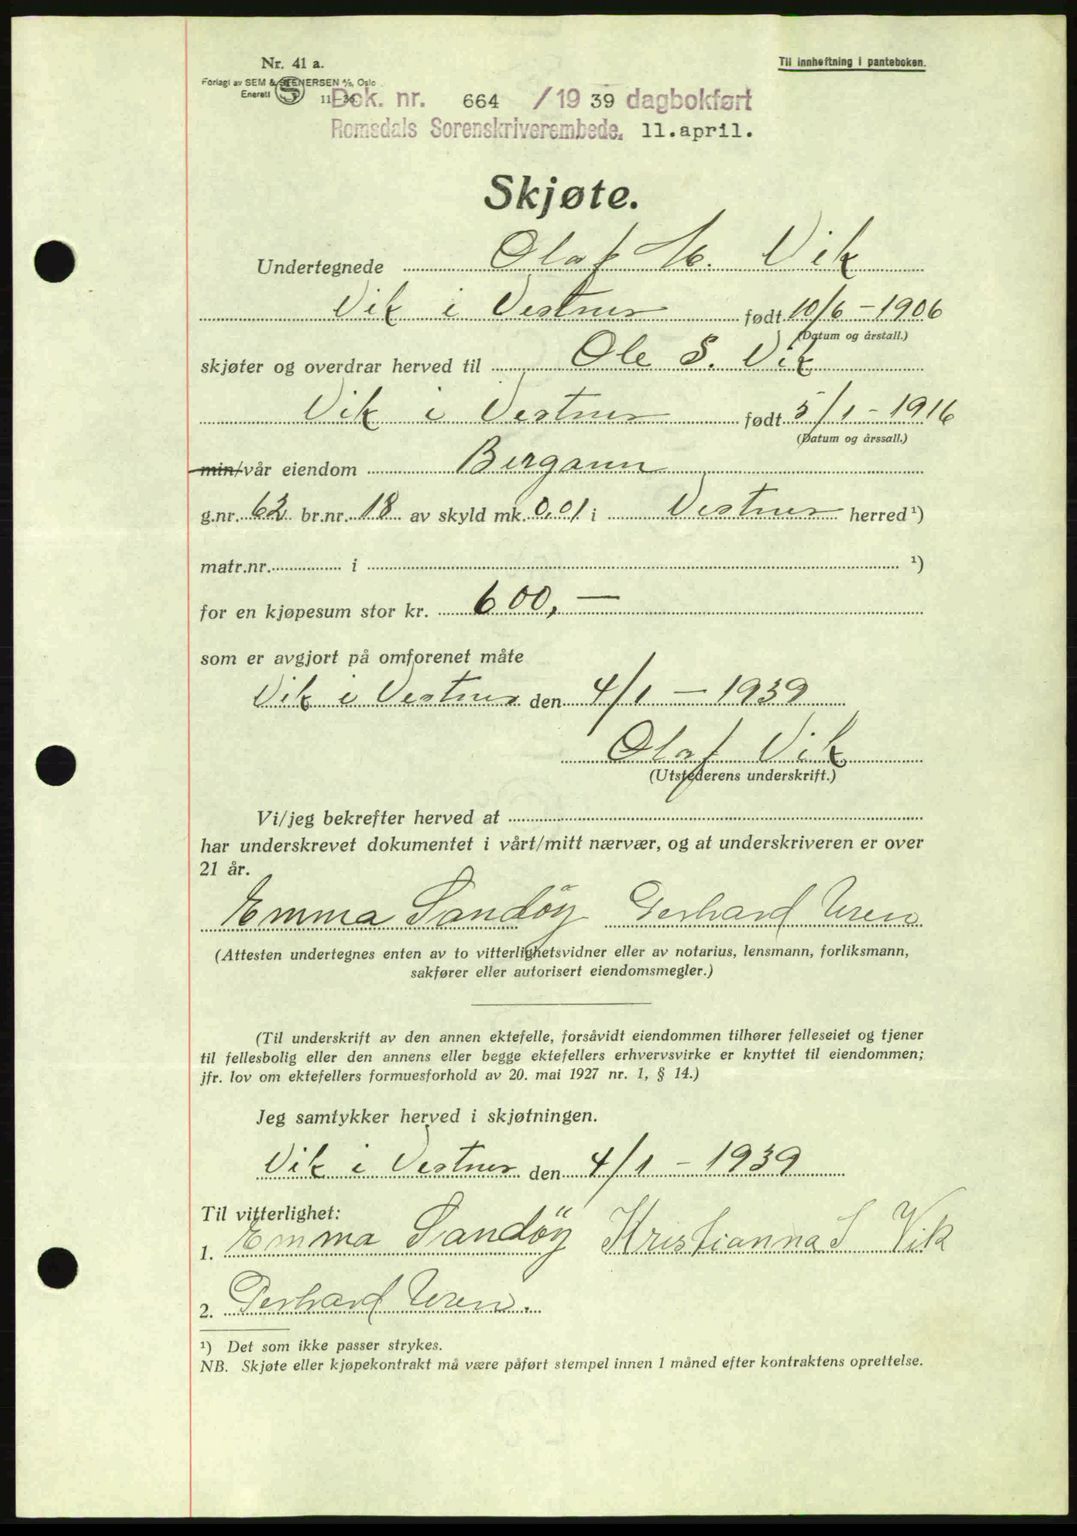 Nr. 41 a.
Til innheftning i panteboken.
Forlagt av SEM & STENERSEN A/S, Oslo
Enerett
Dok. nr. 664 /19 39 dagbokført
Romsdals Sorenskriverembede. 11.april.
Skjøte.
Undertegnede Olaf M. Vik
Vik i Vestnes født 10/6 - 1906
(Datum og årstall.)
skjøter og overdrar herved til Ole S. Vik
Vik i Vestnes født 5/1 - 1916
(Datum og årssall.)
min/vår eiendom Bergann
g.nr. 62 br.nr. 18 av skyld mk. 0,01 i Vestnes herred ¹)
matr.nr. i ¹)
for en kjøpesum stor kr. 600, —
som er avgjort på omforenet måte
Vik i Vestnes den 4/1 - 1939
Olaf Vik
(Utstederens underskrift.)
Vi/jeg bekrefter herved at
har underskrevet dokumentet i vårt/mitt nærvær, og at underskriveren er over
21 år.
Emma Sandöy Gerhard Uren
(Attesten undertegnes enten av to vitterlighetsvidner eller av notarius, lensmann, forliksmann,
sakfører eller autorisert eiendomsmegler.)
(Til underskrift av den annen ektefelle, forsåvidt eiendommen tilhører felleseiet og tjener
til fellesbolig eller den annens eller begge ektefellers erhvervsvirke er knyttet til eiendommen;
jfr. lov om ektefellers formuesforhold av 20. mai 1927 nr. 1, § 14.)
Jeg samtykker herved i skjøtningen.
Vik i Vestnes den 4/1 - 1939
Til vitterlighet:
1. Emma Sandöy Kristianna S Vik
2. Gerhard Uren.
¹) Det som ikke passer strykes.
NB. Skjøte eller kjøpekontrakt må være påført stempel innen 1 måned efter kontraktens oprettelse.